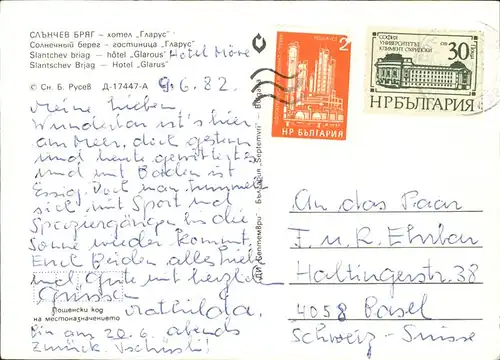 СЛЪНЧЕВ БРЯГ – хотел "Гларус"
Солнечный берег – гостиница "Гларус"
Slantchev briag – hôtel „Glarous" Hotel Möve
Slantschev Brjag – Hotel „Glarus"
© Сн. Б. Русев Д-17447-А 9.6.82.
Meine Lieben,
Wunderbar ist's hier
am Meer, doch gestern
und heute gewitterts
und mit Baden ist
Essig. Doch man tummelt
sich mit Sport und
Spaziergängen bis die
Sonne wieder kommt.
Euch Beiden alles Liebe
und Gute mit herzlichen
Grüssen
Mathilda.
Пощенски код
на местоназначението
Bin am 20.6. abends
zurück. Tschüssli!
ДИ „Септември" България „Septemvri" Bulgaria
2
НР БЪЛГАРИЯ
СОФИЯ
УНИВЕРСИТЕТЪТ
КЛИМЕНТ ОХРИДСКИ
30
НР БЪЛГАРИЯ
An das Paar
F. u. R. Ehrbar
Haltingerstr. 38
4058 Basel
Schweiz - Suisse